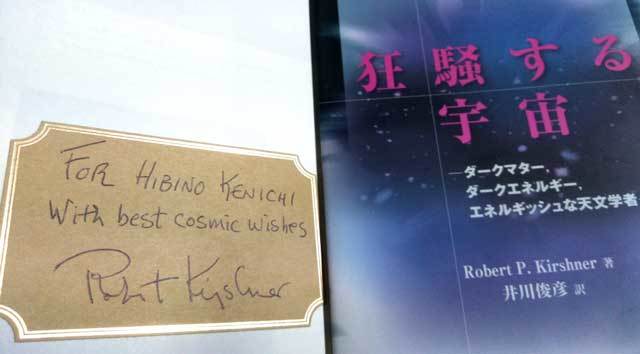 FOR HIBINO KENICHI
With best cosmic wishes
Robert Kirshner
狂騒する
宇宙
―ダークマター、
ダークエネルギー、
エネルギッシュな天文学者
Robert P. Kirshner 著
井川俊彦 訳